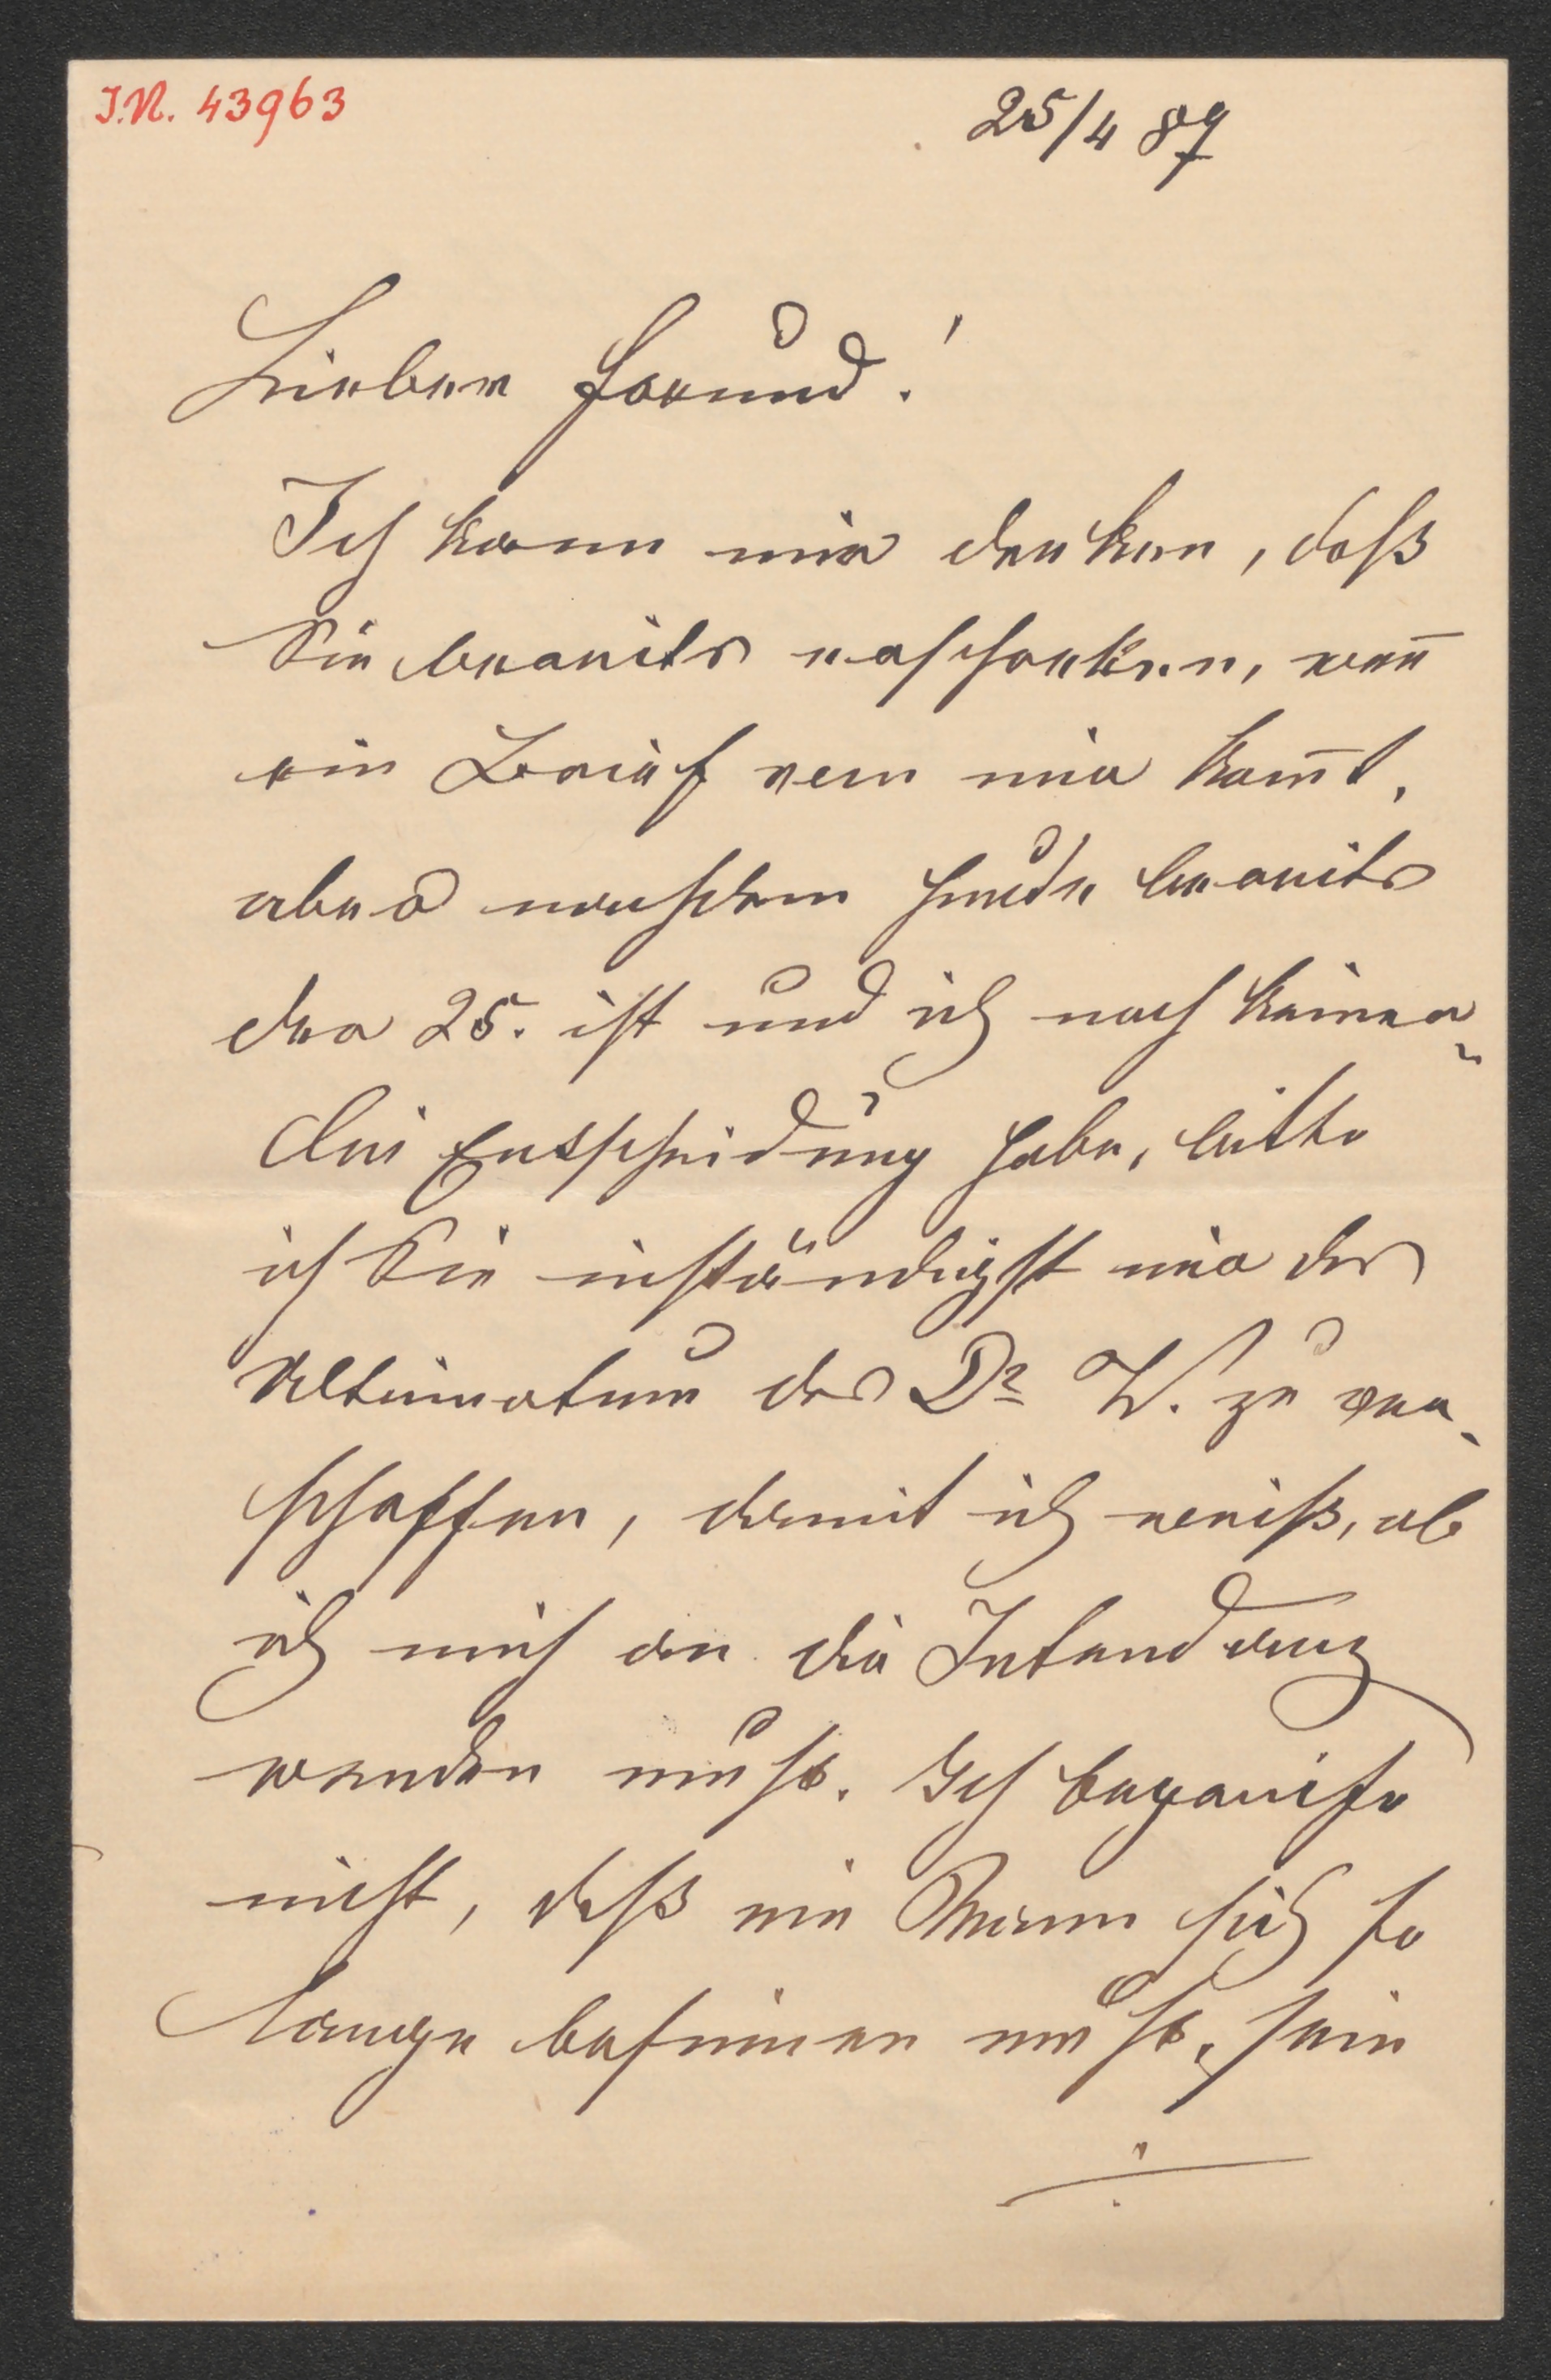 I.N. 43963
25/4 89
Lieber Freund!
Ich kann mir denken, daß
Sie bereits erschrecken, wen̅
ein Brief von mir kom̅t,
aber nachdem heute bereits
der 25. ist und ich noch keiner-
lei Entscheidung habe, bitte
ich Sie inständigst mir das
Ultimatum des Dr W. zu ver-
schaffen, damit ich weiß, ob
ich mich an die Intendanz
wenden muß. Ich begreife
nicht, daß ein Mann sich so
lange besinnen muß, sein